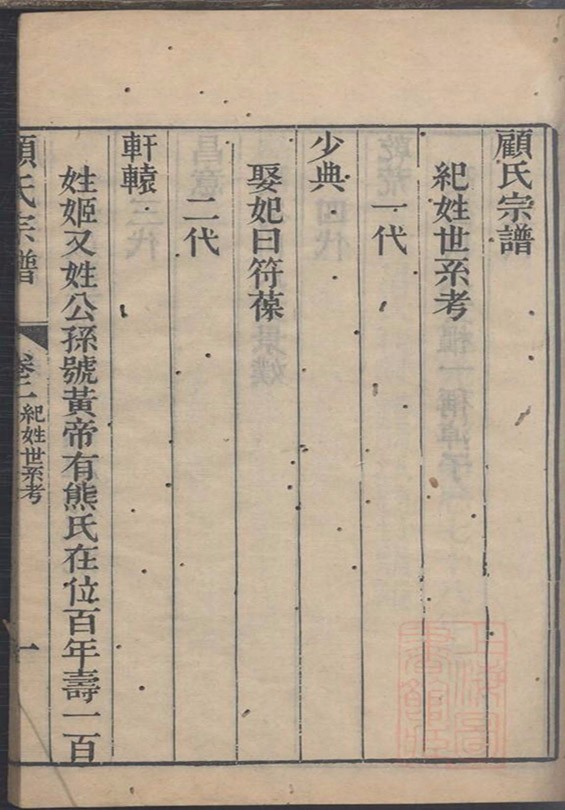 顧氏宗譜
紀姓世系考
一代
少典
娶妃曰符葆
二代
軒轅
姓姬又姓公孫號黃帝有熊氏在位百年壽一百
顧氏宗譜
卷二 紀姓世系考
一